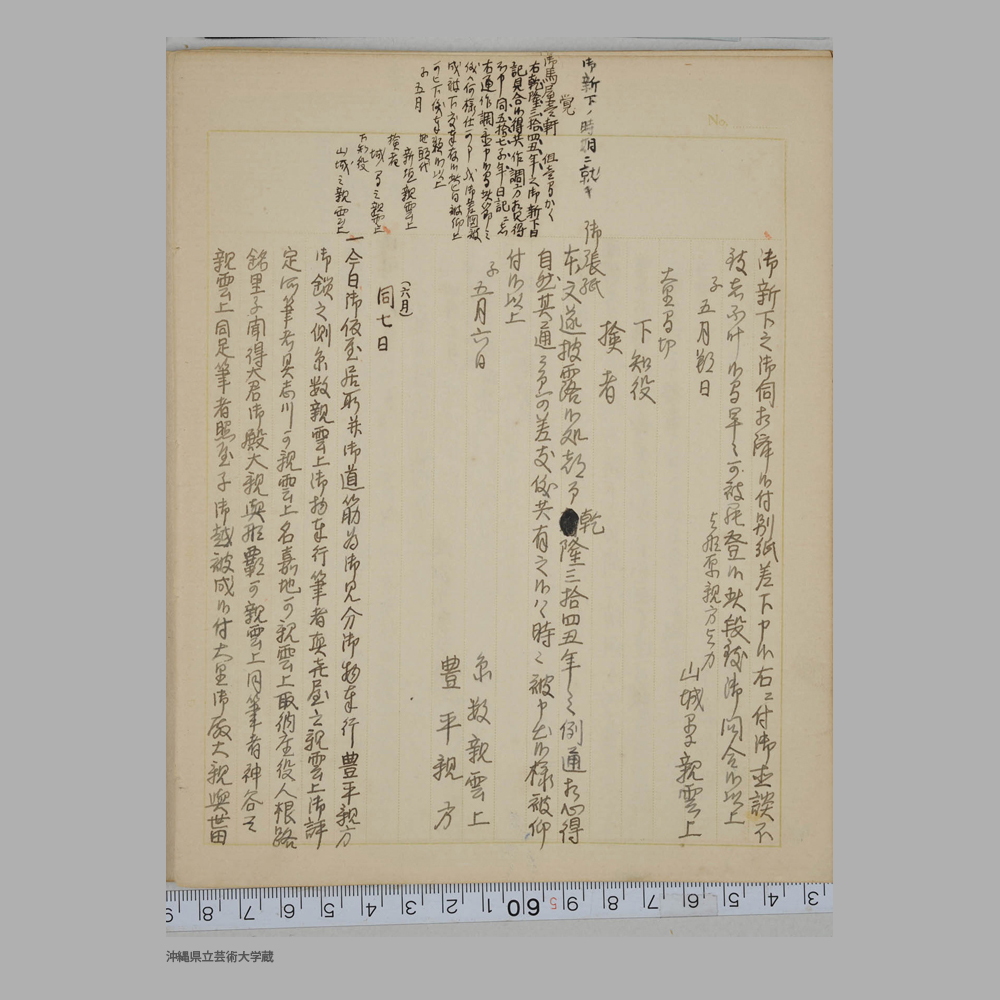 御新下ノ時日ニ就キ
覚
御馬屋壱軒
右乾隆三拾四丑年之御新下日
記見合候得共作調方不見得
不申同五拾七子年日記ニ茂
子五月
新垣親雲上
検者
城間之親雲上
下知役
山城之親雲上
御新下之御伺相済候付別紙差下申候右ニ付御直談不
致候而不叶候間早々可被罷登候此段致御問合候以上
子五月朔日
与那原親方与力
山城里親雲上
大里間切
下知役
検者
御張紙
本文遂披露候処都而乾隆三拾四丑年之例通相心得
自然其通ニ而可差支儀共有之候ハヽ時々被申出候様被仰
付候以上
子五月六日
糸数親雲上
豊平親方
(六月)
同七日
一今日御仮屋居所并御道筋為御見分御物奉行豊平親方
御鎖之側糸数親雲上御物奉行筆者真喜屋之親雲上御評
定所筆者具志川可親雲上名嘉地可親雲上取納座役人根路
銘里子聞得大君御殿大親与那覇可親雲上同筆者神谷之
親雲上同足筆者照屋子御越被成候付大里御殿大親與世田
No.
沖縄県立芸術大学蔵